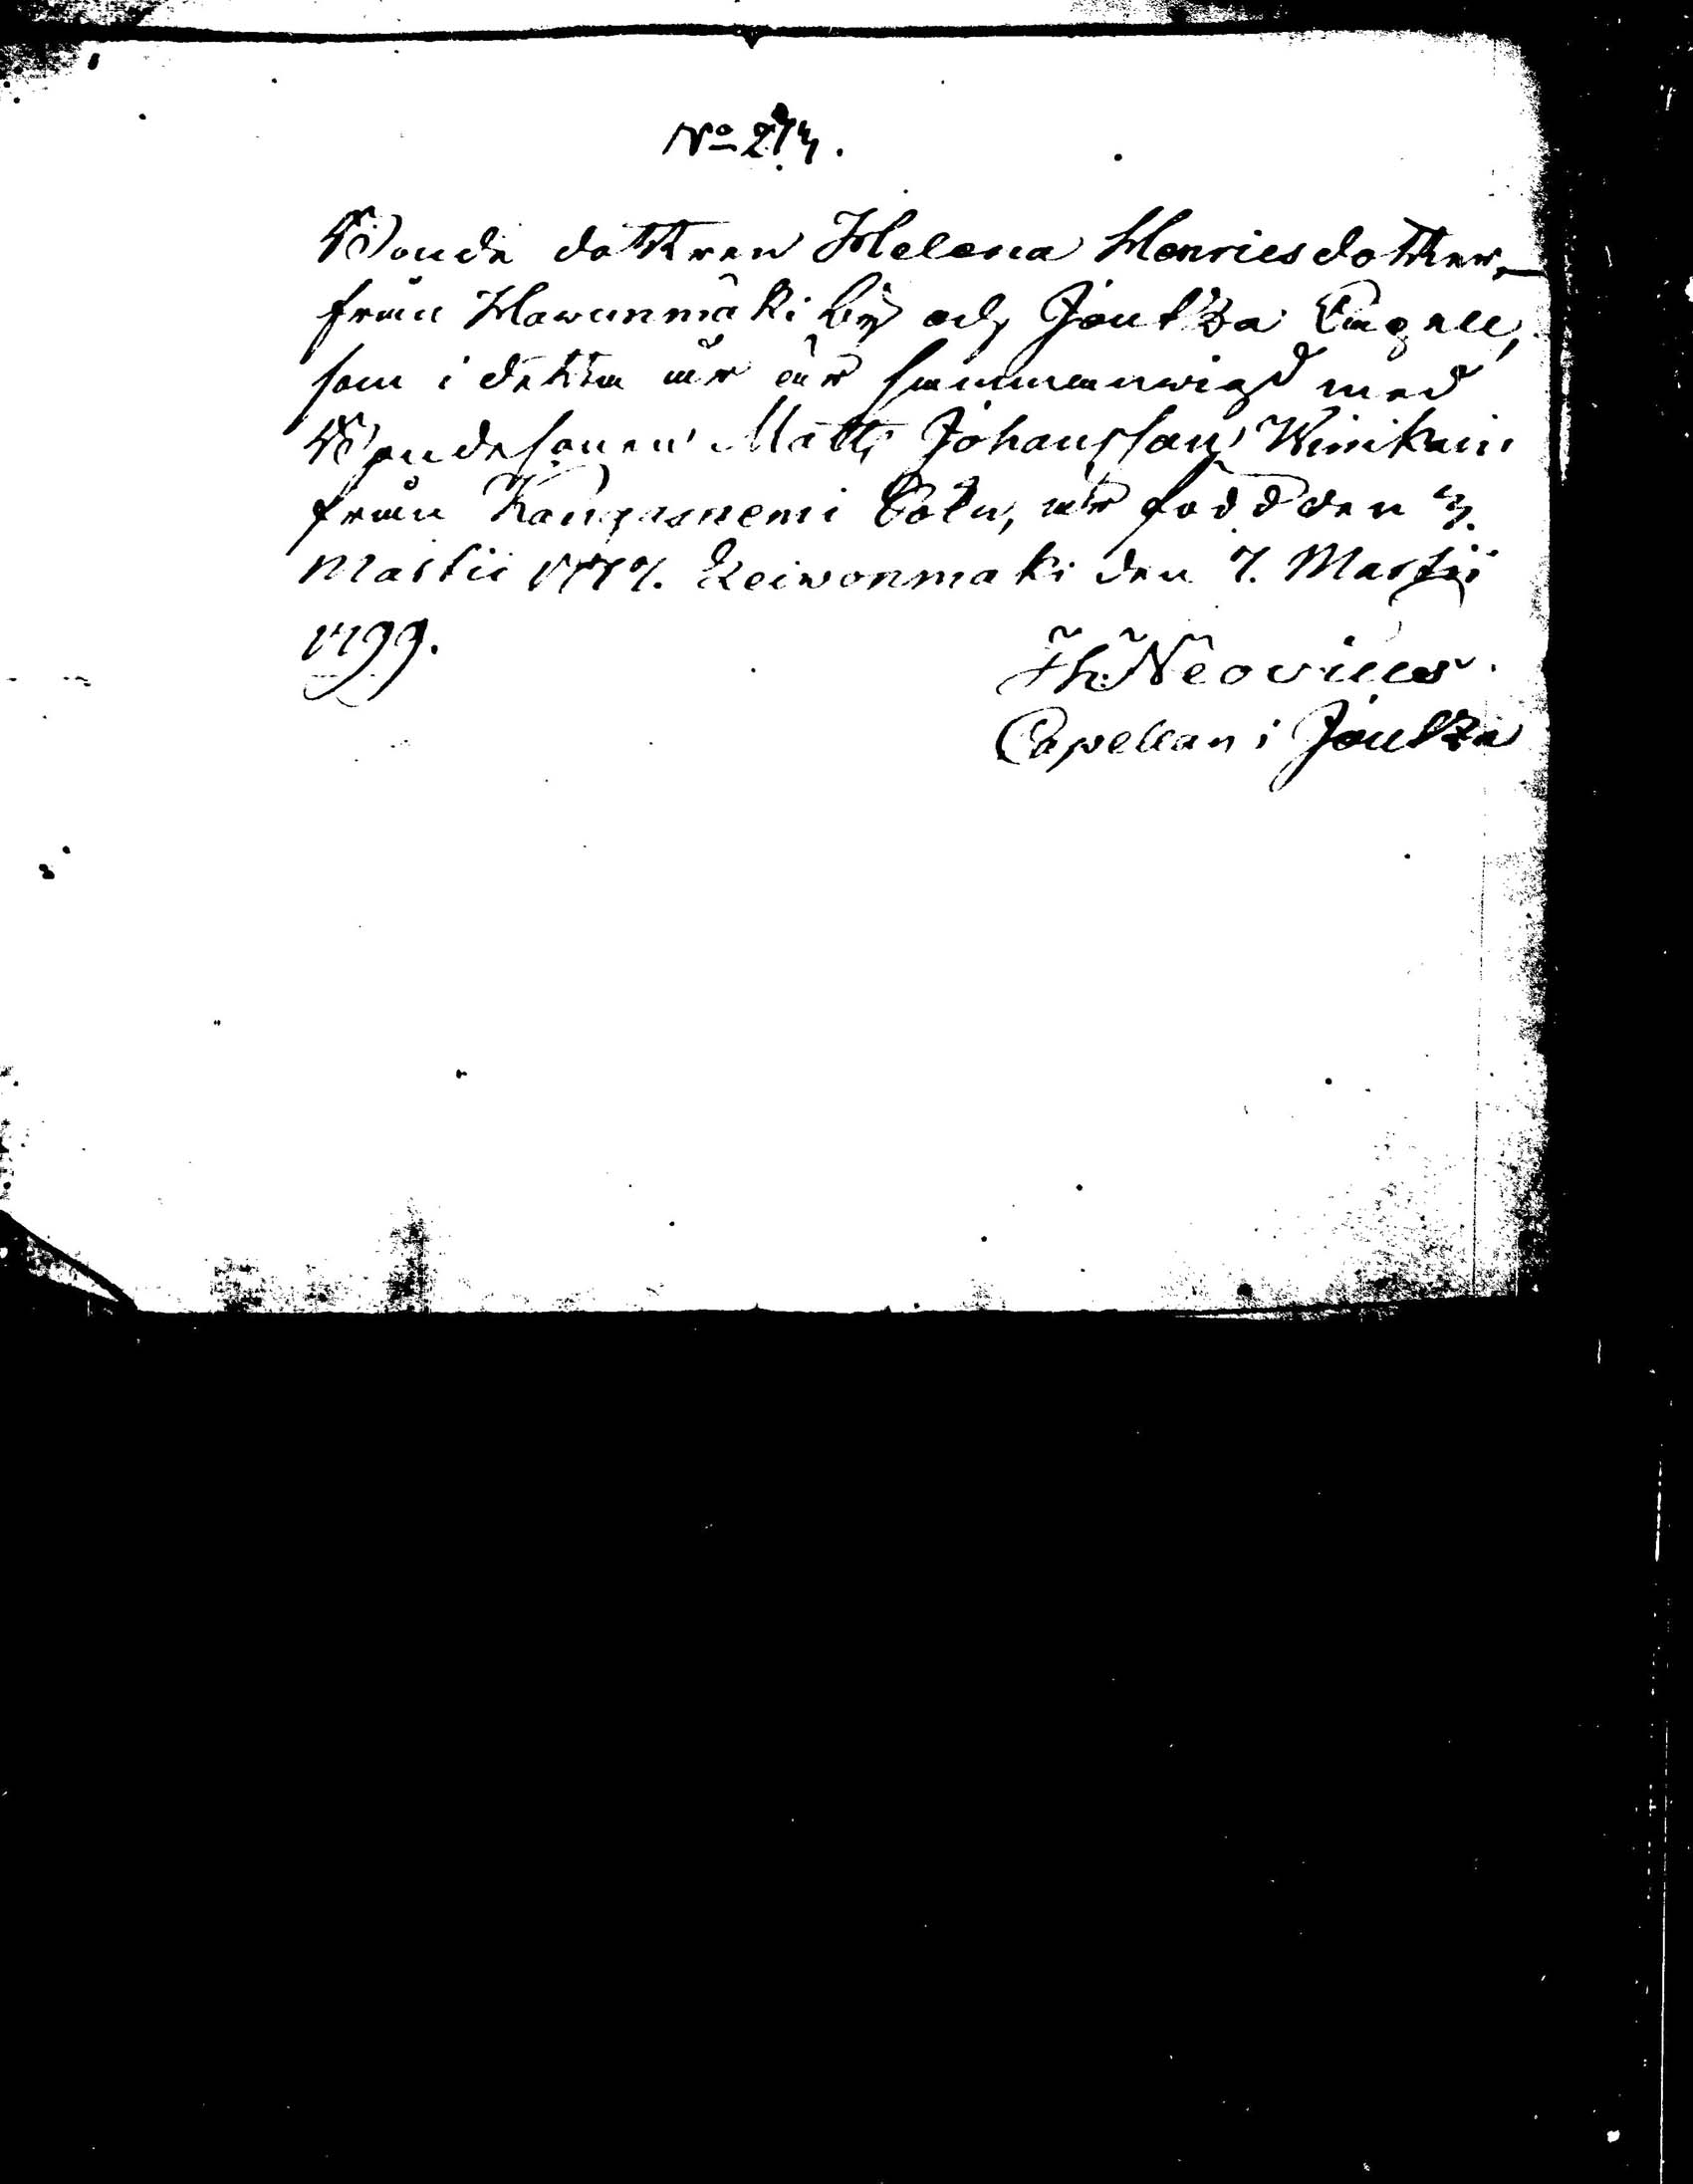 No 273.
Bonde dottren Helena Henricsdotter,
från Hawunmäki by och Joutza Capell,
som i detta år är sammanwigd med
Bondesonen Matts Johansson Winikain
från Kangasnemi Sokn, är född den 3.
Martii 1777. Leiwonmäki den 7. Martii
1799.
Th: Neovius
Capellan i Joutza